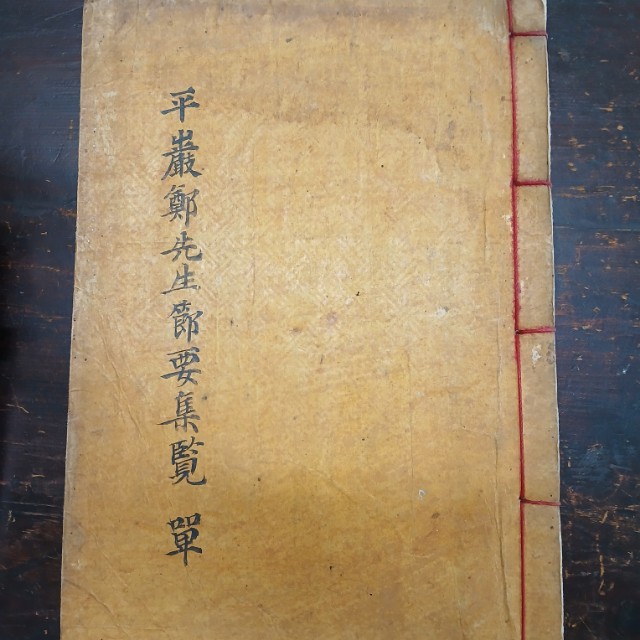 平巖鄭先生節要集覽 單